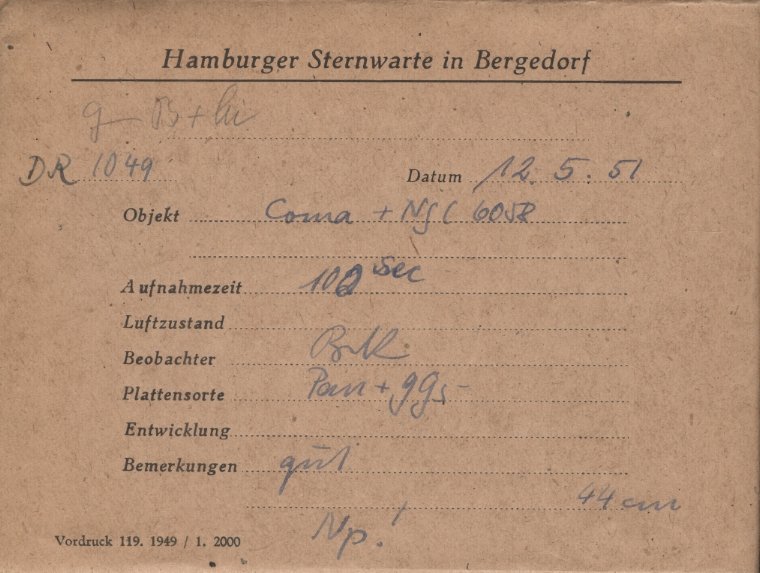 Hamburger Sternwarte in Bergedorf
DR 1049
Datum 12. 5. 51
Objekt Coma + NGC 6058
Aufnahmezeit 102 sec
Luftzustand
Beobachter
Plattensorte Pan + gg5
Entwicklung
Bemerkungen gut
44 cm
Np!
Vordruck 119. 1949 / 1. 2000